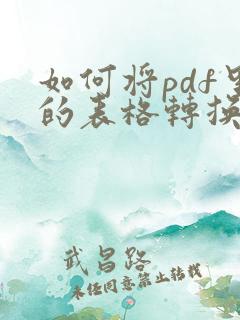 如何将pdf里
的表格轉换
武昌路
未经同意禁止转载